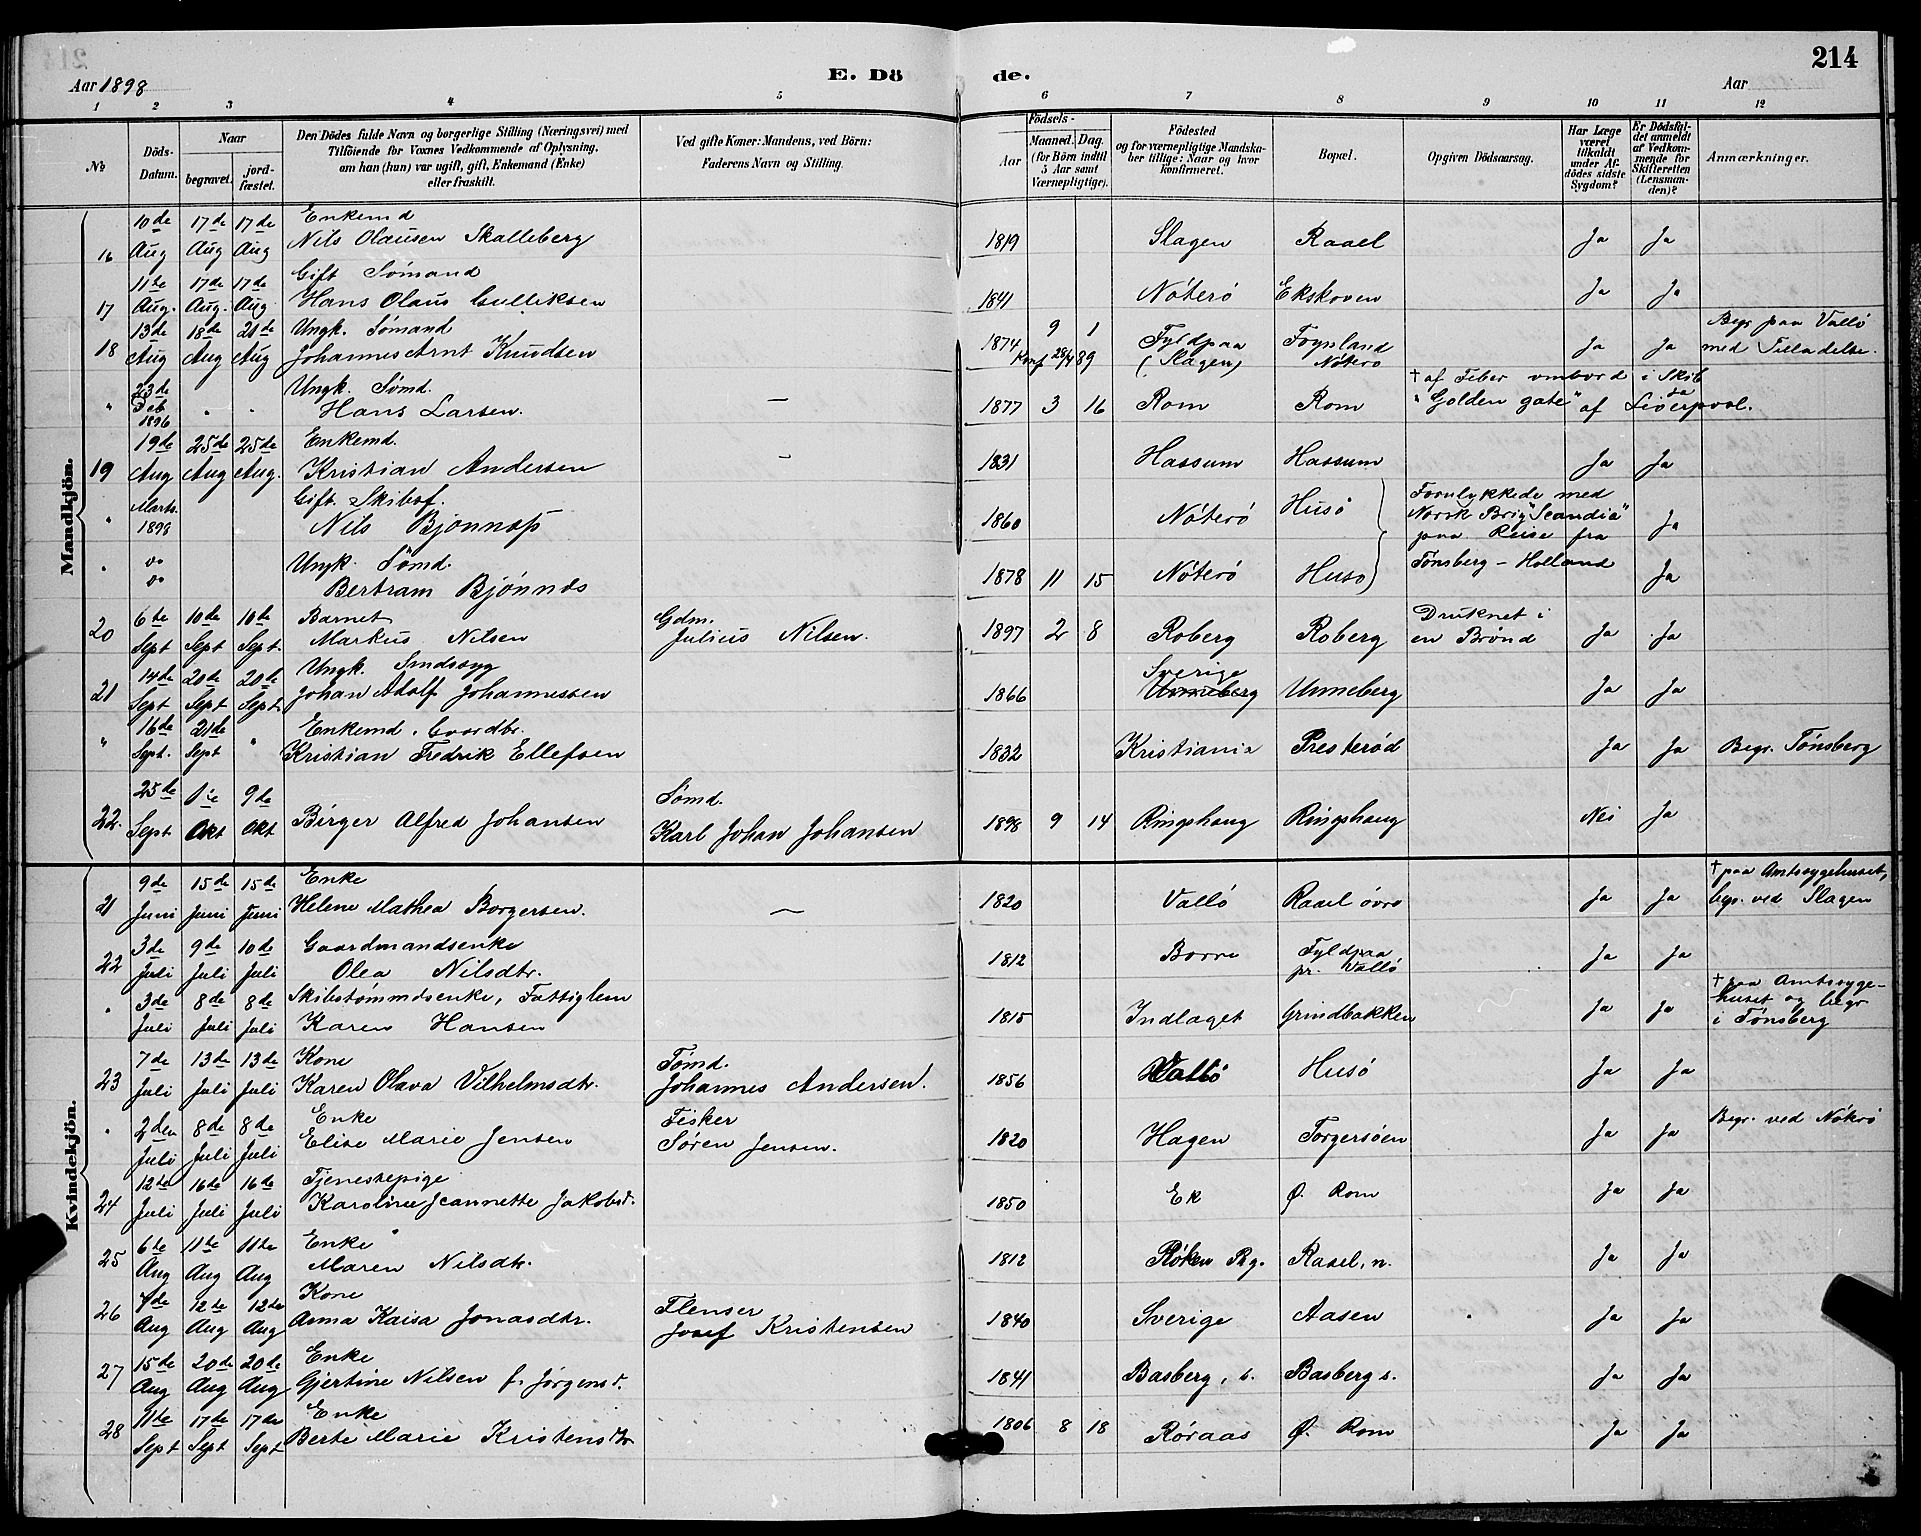 214
Aar 1898
E. Dö de.
Aar
1 2 3 4 5 6 7 8 9 10 11 12
№
Döds-Datum.
Naar
begravet.
jord-fæstet.
Den Dödes fulde Navn og borgerlige Stilling (Næringsvei) med
Tilföiende for Voxnes Vedkommende af Oplysning,
om han (hun) var ugift, gift, Enkemand (Enke)
eller fraskilt.
Ved gifte Koner: Mandens, ved Börn:
Faderens Navn og Stilling.
Födsels-
Aar
Maaned.
Dag.
(for Börn indtil
5 Aar samt
Værnepligtige).
Födested
og for værnepligtige Mandska-
ber tillige: Naar og hvor
konfirmeret.
Bopæl.
Opgiven Dödsaarsag.
Har Læge
været
tilkaldt
under Af-
dödes sidste
Sygdom?
Er Dödsfal-
det anmeldt
af Vedkom-
mende for
Skifteretten
(Lensman-
den)?
Anmærkninger.
Mandkjön.
10de 17de 17de Enkemd
16 Aug Aug Aug Nils Olausen Skalleberg 1819 Slagen Raael Ja Ja
11te 17de 17de Gift Sømand
17 Aug. Aug. Aug Hans Olaus Gulliksen 1841 Nøterø Ekskoven Ja Ja
13de 18de 21de Ungk. Sømand 9 1 Fyldpaa Føynland Begr paa Vallø
18 Aug Aug Aug Johannes Arnt Knudsen 1874 Konf 28/4 89 (Slagen) Nøterø Ja Ja med Tilladelse.
23de Ungk. Sømd. † af Feber ombord i Skib
" Feb " " Hans Larsen. — 1877 3 16 Rom Rom "Golden gate" af Liverpool. Ja
1896
19de 25de 25de Enkemd.
19 Aug Aug Aug. Kristian Andersen - 1831 Hassum Hassum Ja Ja
Marts Gift Skibsf. Forulykkede med
" 1898 Nils Bjønnes 1860 Nøterø Husø Norsk Brig "Scandia" Ja
paa Reise fra
" do Ungk. Sømd. Tønsberg - Holland
do Bertram Bjønnes 1878 11 15 Nøterø Husø Ja
6te 10de 10de Barnet Gdm. Druknet i
20 Sept Sept Sept. Markus Nilsen Julius Nilsen. 1897 2 8 Roberg Roberg en Brønd Ja Ja
14de 20de 20de Ungk. Sindssyg Sverige
21 Sept Sept Sept. Johan Adolf Johannessen 1866 Unneberg Unneberg Ja Ja
16de 21de Enkemd. Gaardbr.
" Sept. Sept " Kristian Fredrik Ellefsen 1832 Kristiania Presterød Ja Ja Begr. Tønsberg
25de 1ste 9de Sømd.
22. Sept Okt Okt Birger Alfred Johansen Karl Johan Johansen 1898 9 14 Ringshaug Ringshaug Nei Ja
Kvindekjön.
9de 15de 15de Enke † paa Amtssygehuset,
21 Juni Juni Juni Helene Mathea Borgersen. — 1820 Vallø Raael øvre Ja Ja begr. ved Slagen
3de 9de 10de Gaardmandsenke Fyldpaa
22 Juli Juli Juli Olea Nilsdtr. 1812 Borre pr. Vallø Ja Ja
3de 8de 8de Skibstømmdsenke, Fattiglem † paa Amtssyge-
" Juli Juli Juli Karen Hansen 1815 Indlaget Grindbakken Ja Ja huset og begr
i Tønsberg
7de 13de 13de Kone Tømd.
23 Juli Juli Juli Karen Olava Vilhelmsdtr. Johannes Andersen. 1856 Vallø Husø Ja Ja
2den 8de 8de Enke Fisker
" Juli Juli Juli Elise Marie Jensen Søren Jensen. 1820 Hagen Torgersøen Ja Ja Begr. ved Nøterø
12te 16de 16de Tjenestepige
24 Juli Juli Juli Karoline Jeannette Jakobsd. 1850 Ek Ø. Rom Ja Ja
6te 11te 11te Enke
25 Aug Aug Aug Maren Nilsdtr. 1812 Røken Prg. Raael, n. Ja Ja
7de 12te 12te Kone Flenser
26 Aug Aug Aug Anna Kaisa Jonasdtr. Josef Kristensen 1840 Sverige Aasen Ja Ja
15de 20de 20de Enke
27 Aug Aug Aug Gjertine Nilsen f. Jørgensd. 1841 Basberg, s. Basberg s. Ja Ja
11te 17de 17de Enke
28 Sept Sept Sept Berte Marie Kristensdtr 1806 8 18 Røraas Ø. Rom Ja Ja